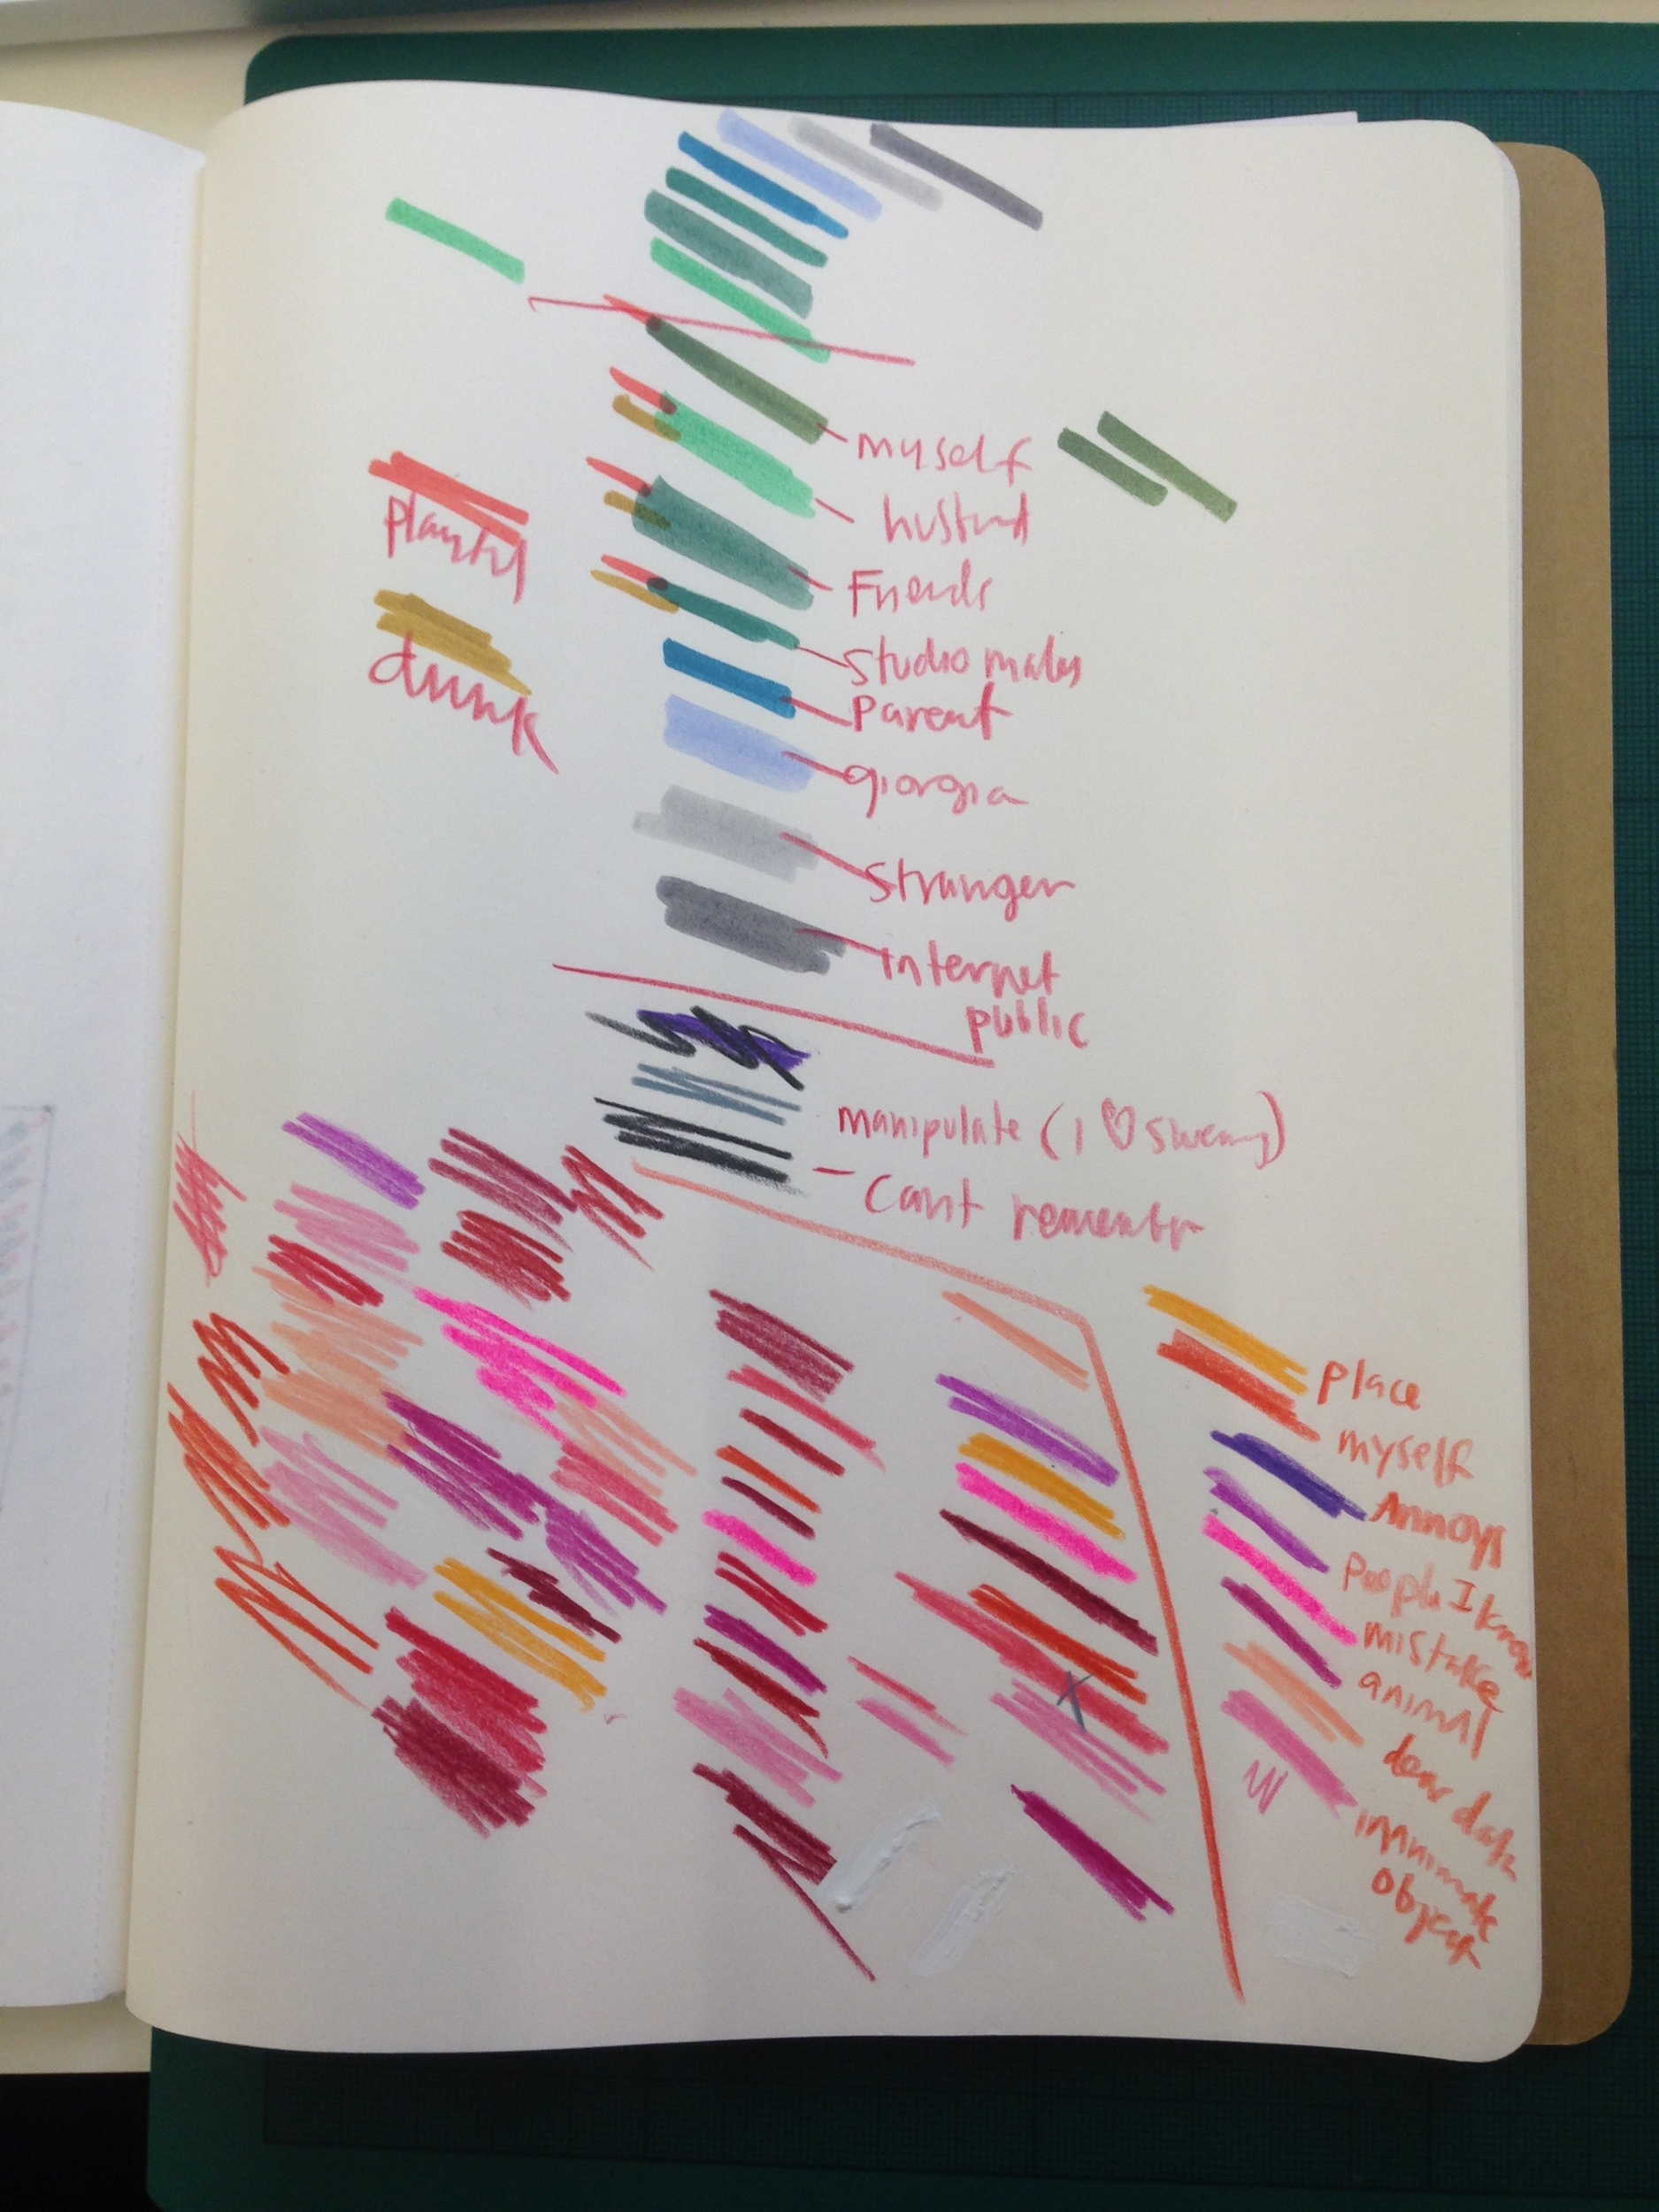 myself
husband
Friends
playful
drunk
Studio mates
Parent
giorgia
Stranger
Internet
public
manipulate (I ♡ swearing)
Can't remember
place
myself
Annoys
People I know
mistake
animal
dear data
innimate
object